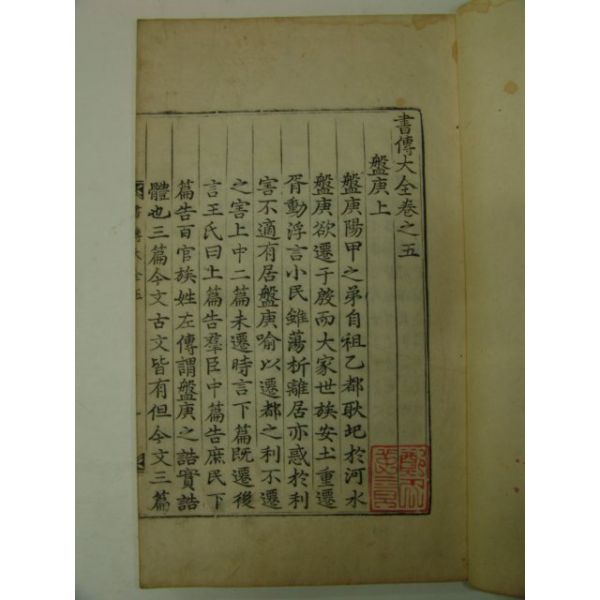 書傳大全卷之五
盤庚上
盤庚陽甲之弟自祖乙都耿圯於河水
盤庚欲遷于殷而大家世族安土重遷
胥動浮言小民雖蕩析離居亦惑於利
害不適有居盤庚喻以遷都之利不遷
之害上中二篇未遷時言下篇旣遷後
言王氏曰上篇告羣臣中篇告庶民下
篇告百官族姓左傳謂盤庚之誥實誥
體也三篇今文古文皆有但今文三篇